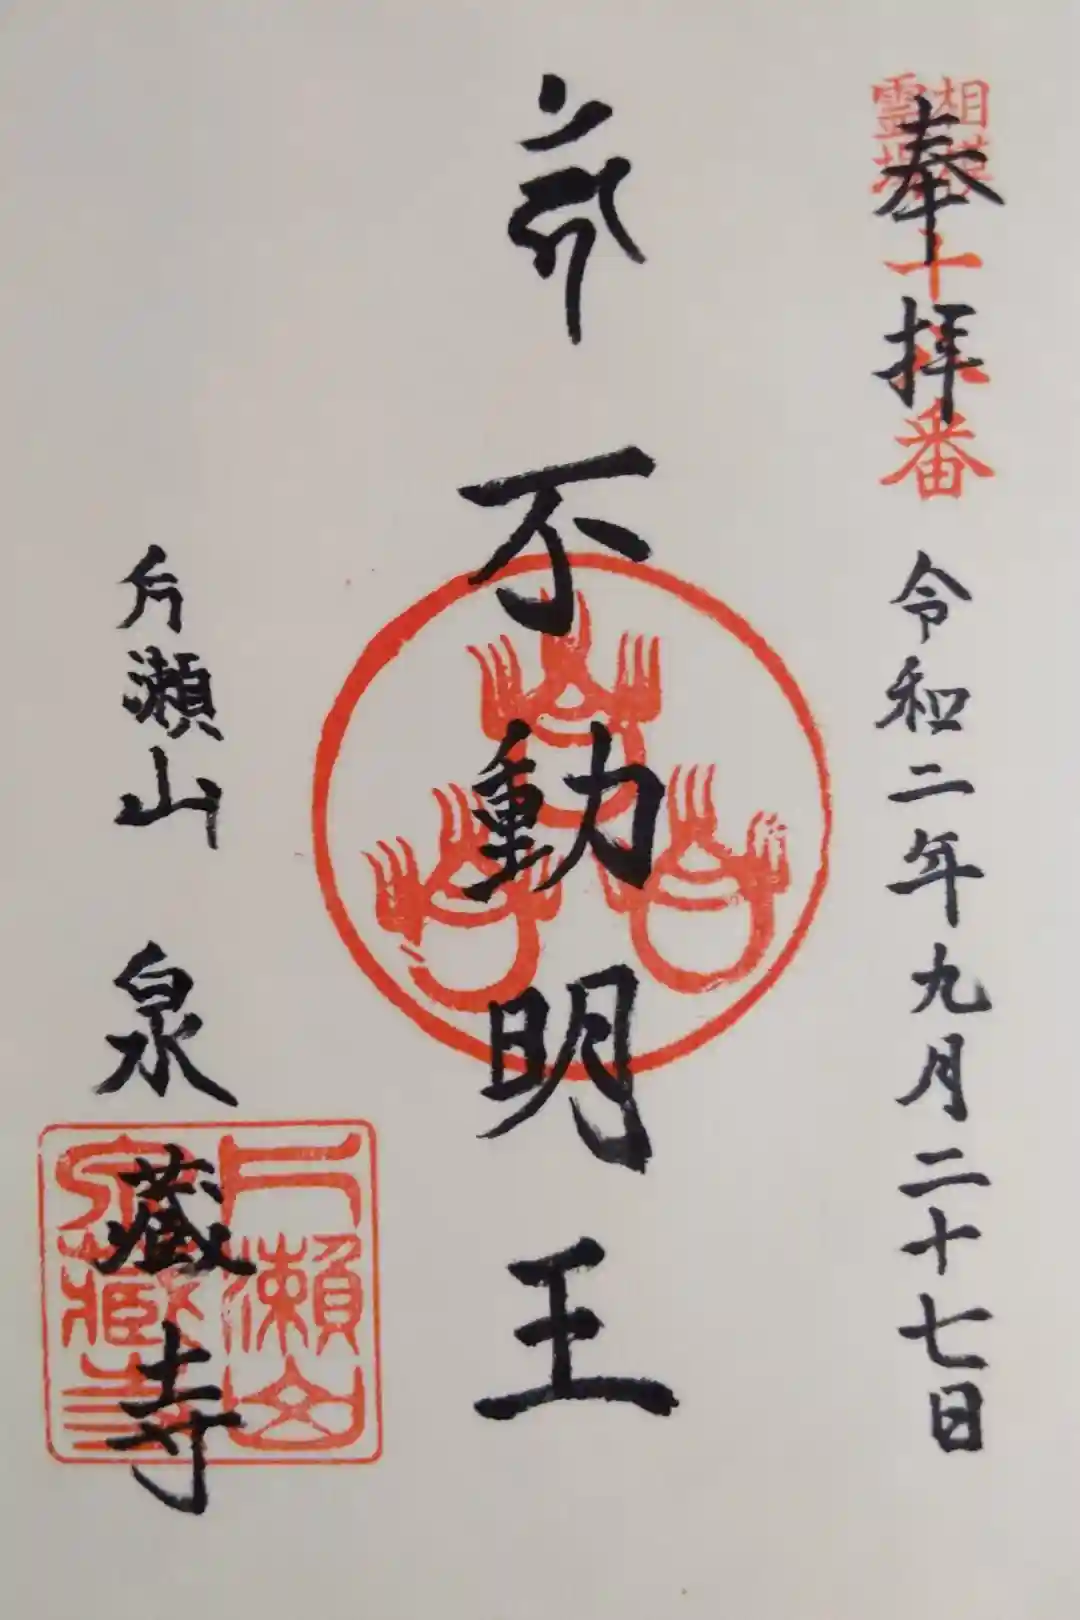 奉拝
令和二年九月二十七日
相模
霊場
番
不動明王
片瀬山
泉蔵寺
片瀬山
泉蔵寺